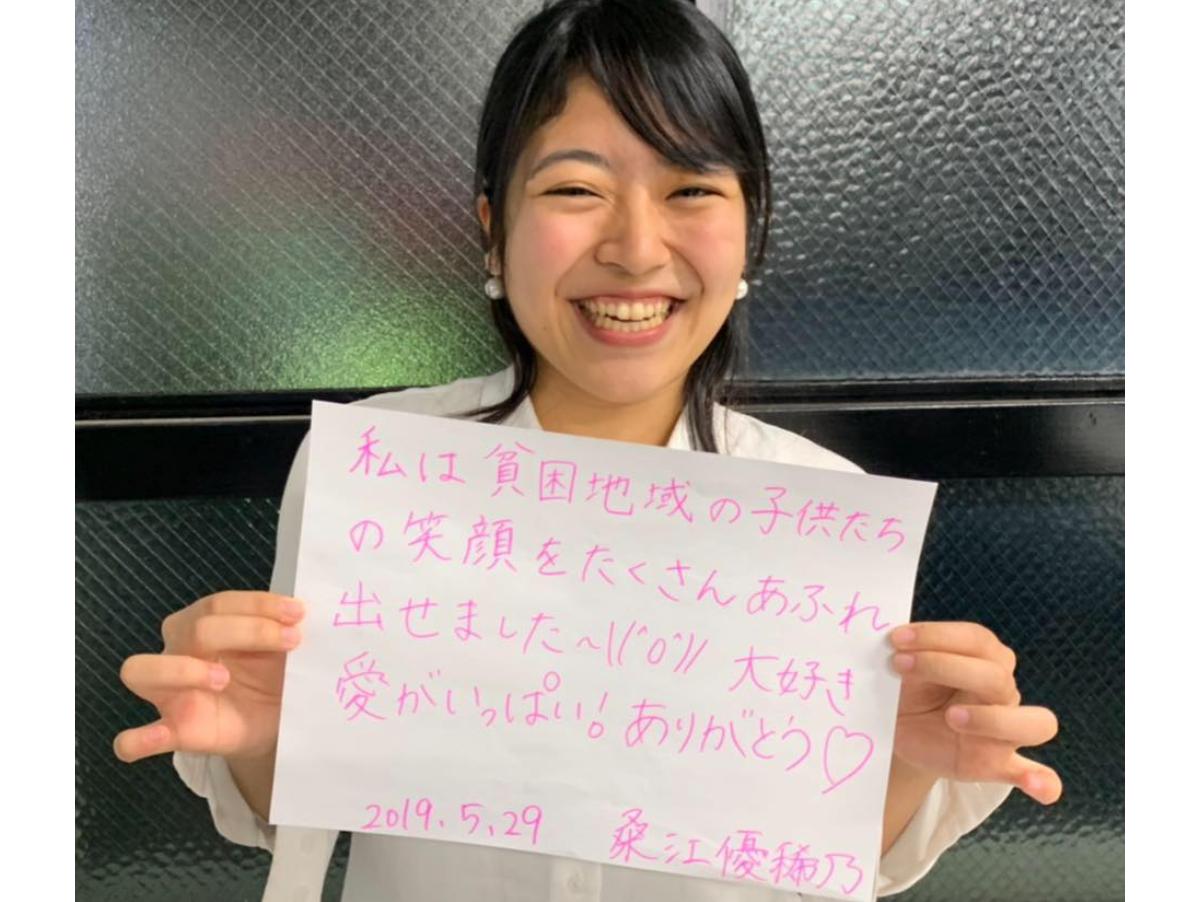 私は貧困地域の子供たち
の笑顔をたくさんあふれ
出せました~\(^o^)// 大好き
愛がいっぱい!ありがとう♡
2019.5.29 桑江優稀乃